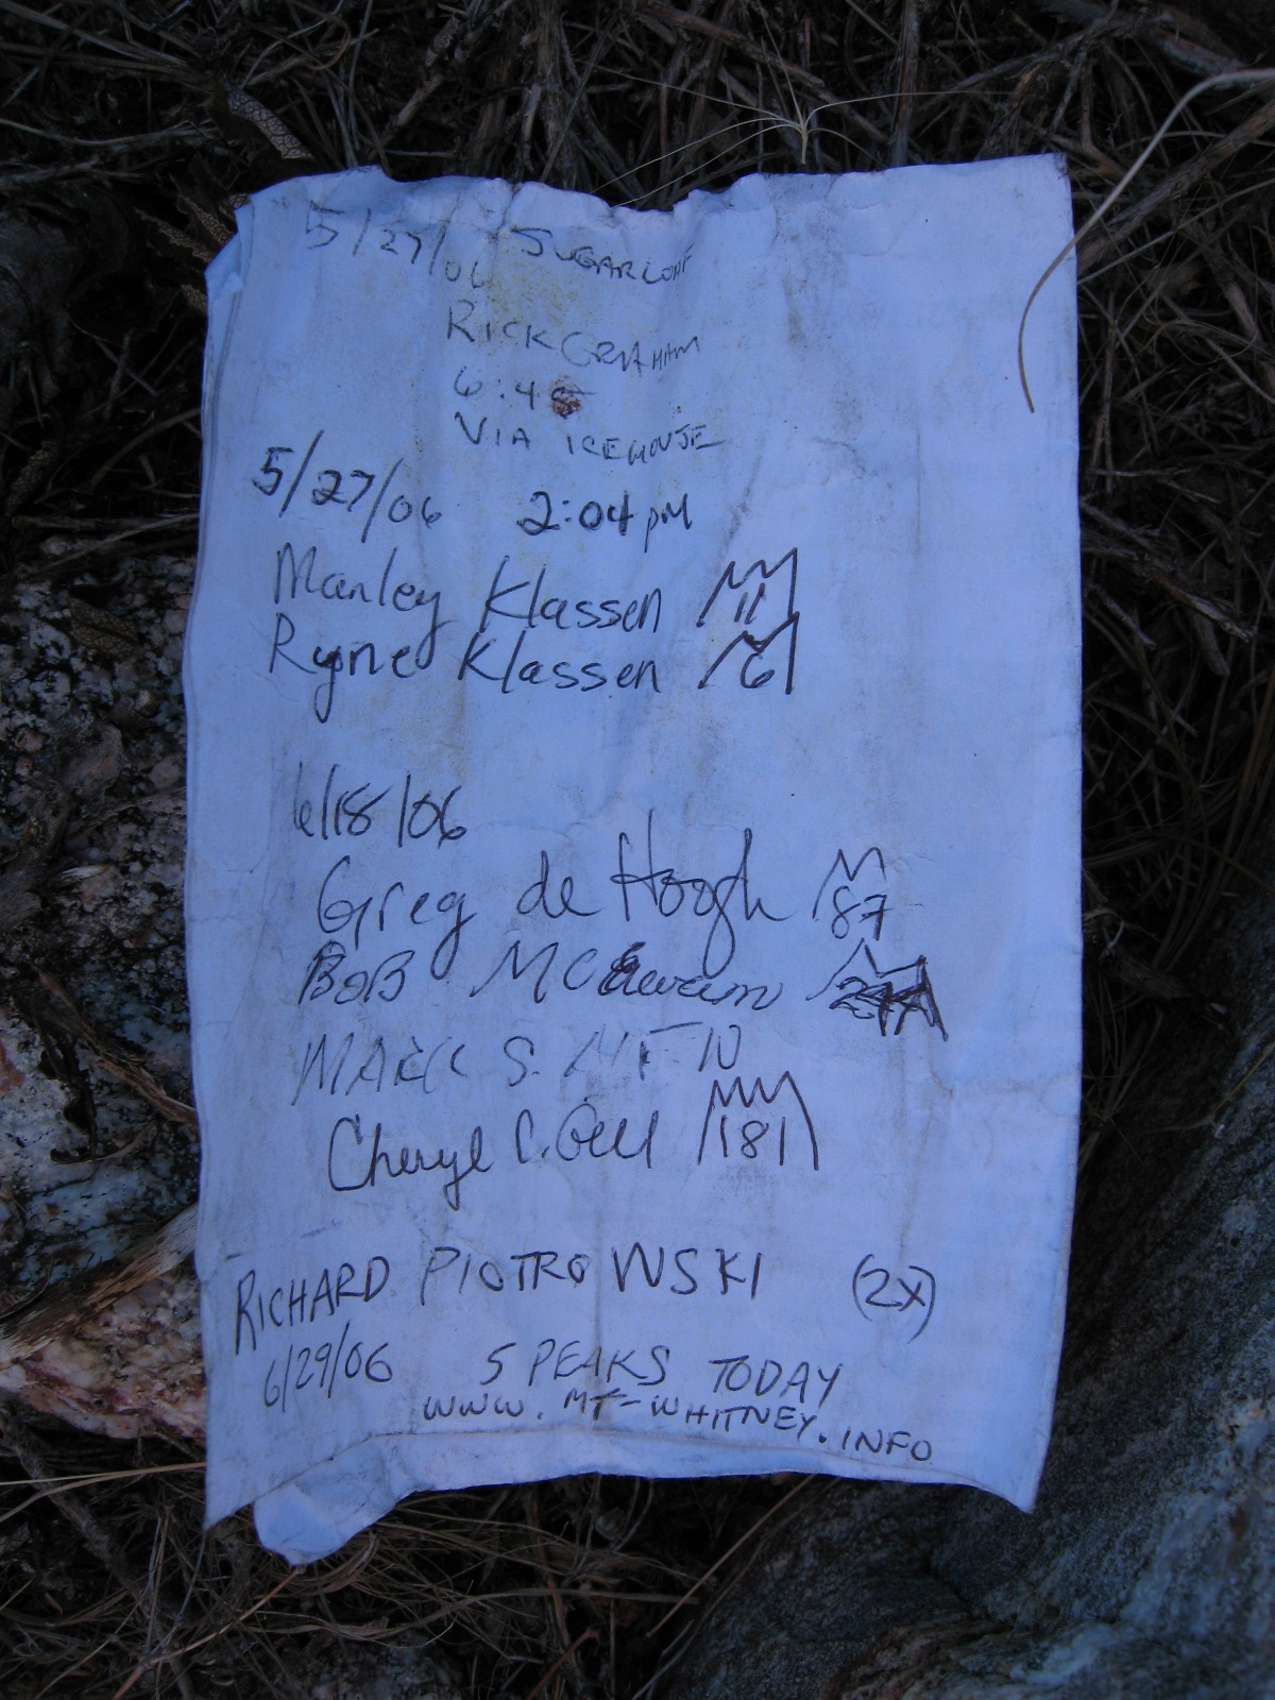 5/27/06 SUGARLOAF
RICK GRAHAM
6:4
VIA ICEHOUSE
5/27/06 2:04 pM
Manley Klassen 11
Ryne Klassen 6
6/18/06
Greg de Hoogh 87
BOB
MARK S.
Cheryl C. Gill 181
RICHARD PIOTROWSKI (2X)
6/29/06 5 PEAKS TODAY
WWW.MT-WHITNEY.INFO